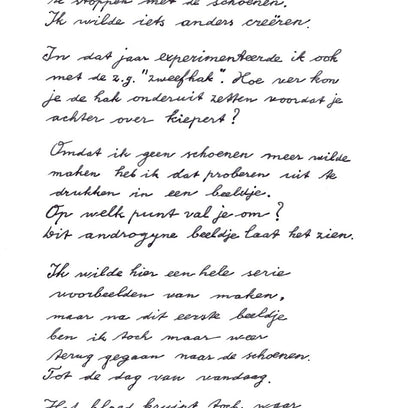 te stoppen met de schoenen.
Ik wilde iets anders creëren.
In dat jaar experimenteerde ik ook
met de z.g. "zweefhak". Hoe ver kon
je de hak onderuit zetten voordat je
achter over kiepert?
Omdat ik geen schoenen meer wilde
maken heb ik dat proberen uit te
drukken in een beeldje.
Op welk punt val je om?
Dit androgyne beeldje laat het zien.
Ik wilde hier een hele serie
voorbeelden van maken,
maar na dit eerste beeldje
ben ik toch maar weer
terug gegaan naar de schoenen.
Tot de dag van vandaag.
Het bloed kruipt toch waar